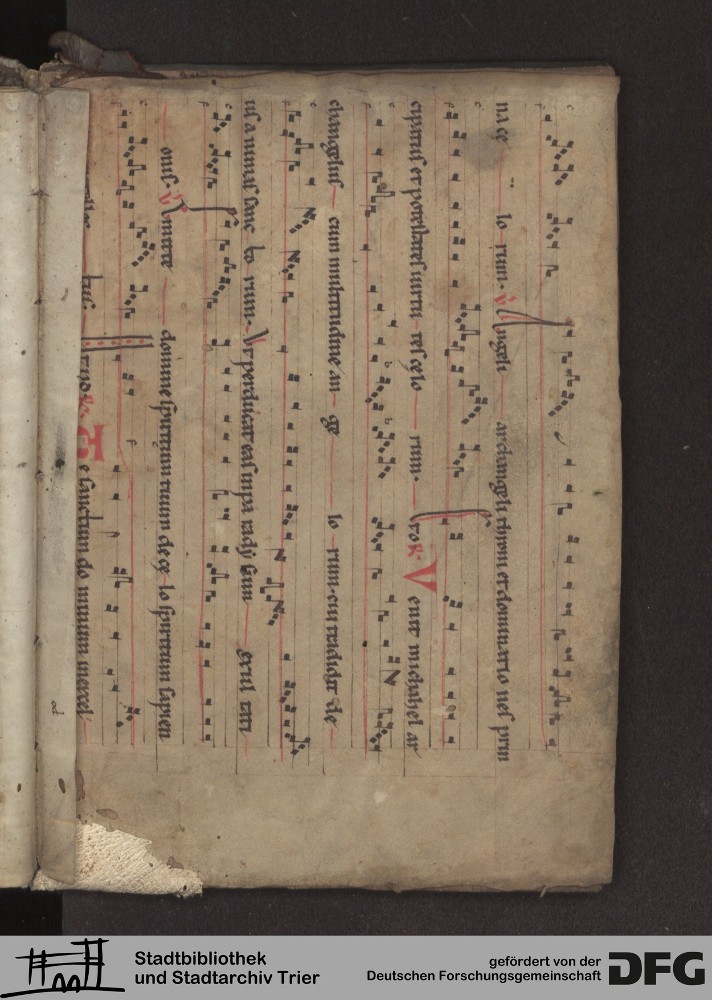 na ce lo rum. V Angeli archangeli throni et dominatio nes prin
cipatus et potestates uirtu tes celo rum. Pro R. Venit michahel ar
changelus cum multitudine an ge lo rum. cui tradidit de
us animas sanc to rum. Vt perducat eas in pa radysum exul tati
onis. V Emitte domine spiritum tuum de ce lo spiritum sapien
tus. R. Te sanctum do minum in excel
Stadtbibliothek
und Stadtarchiv Trier
gefördert von der
Deutschen Forschungsgemeinschaft
DFG